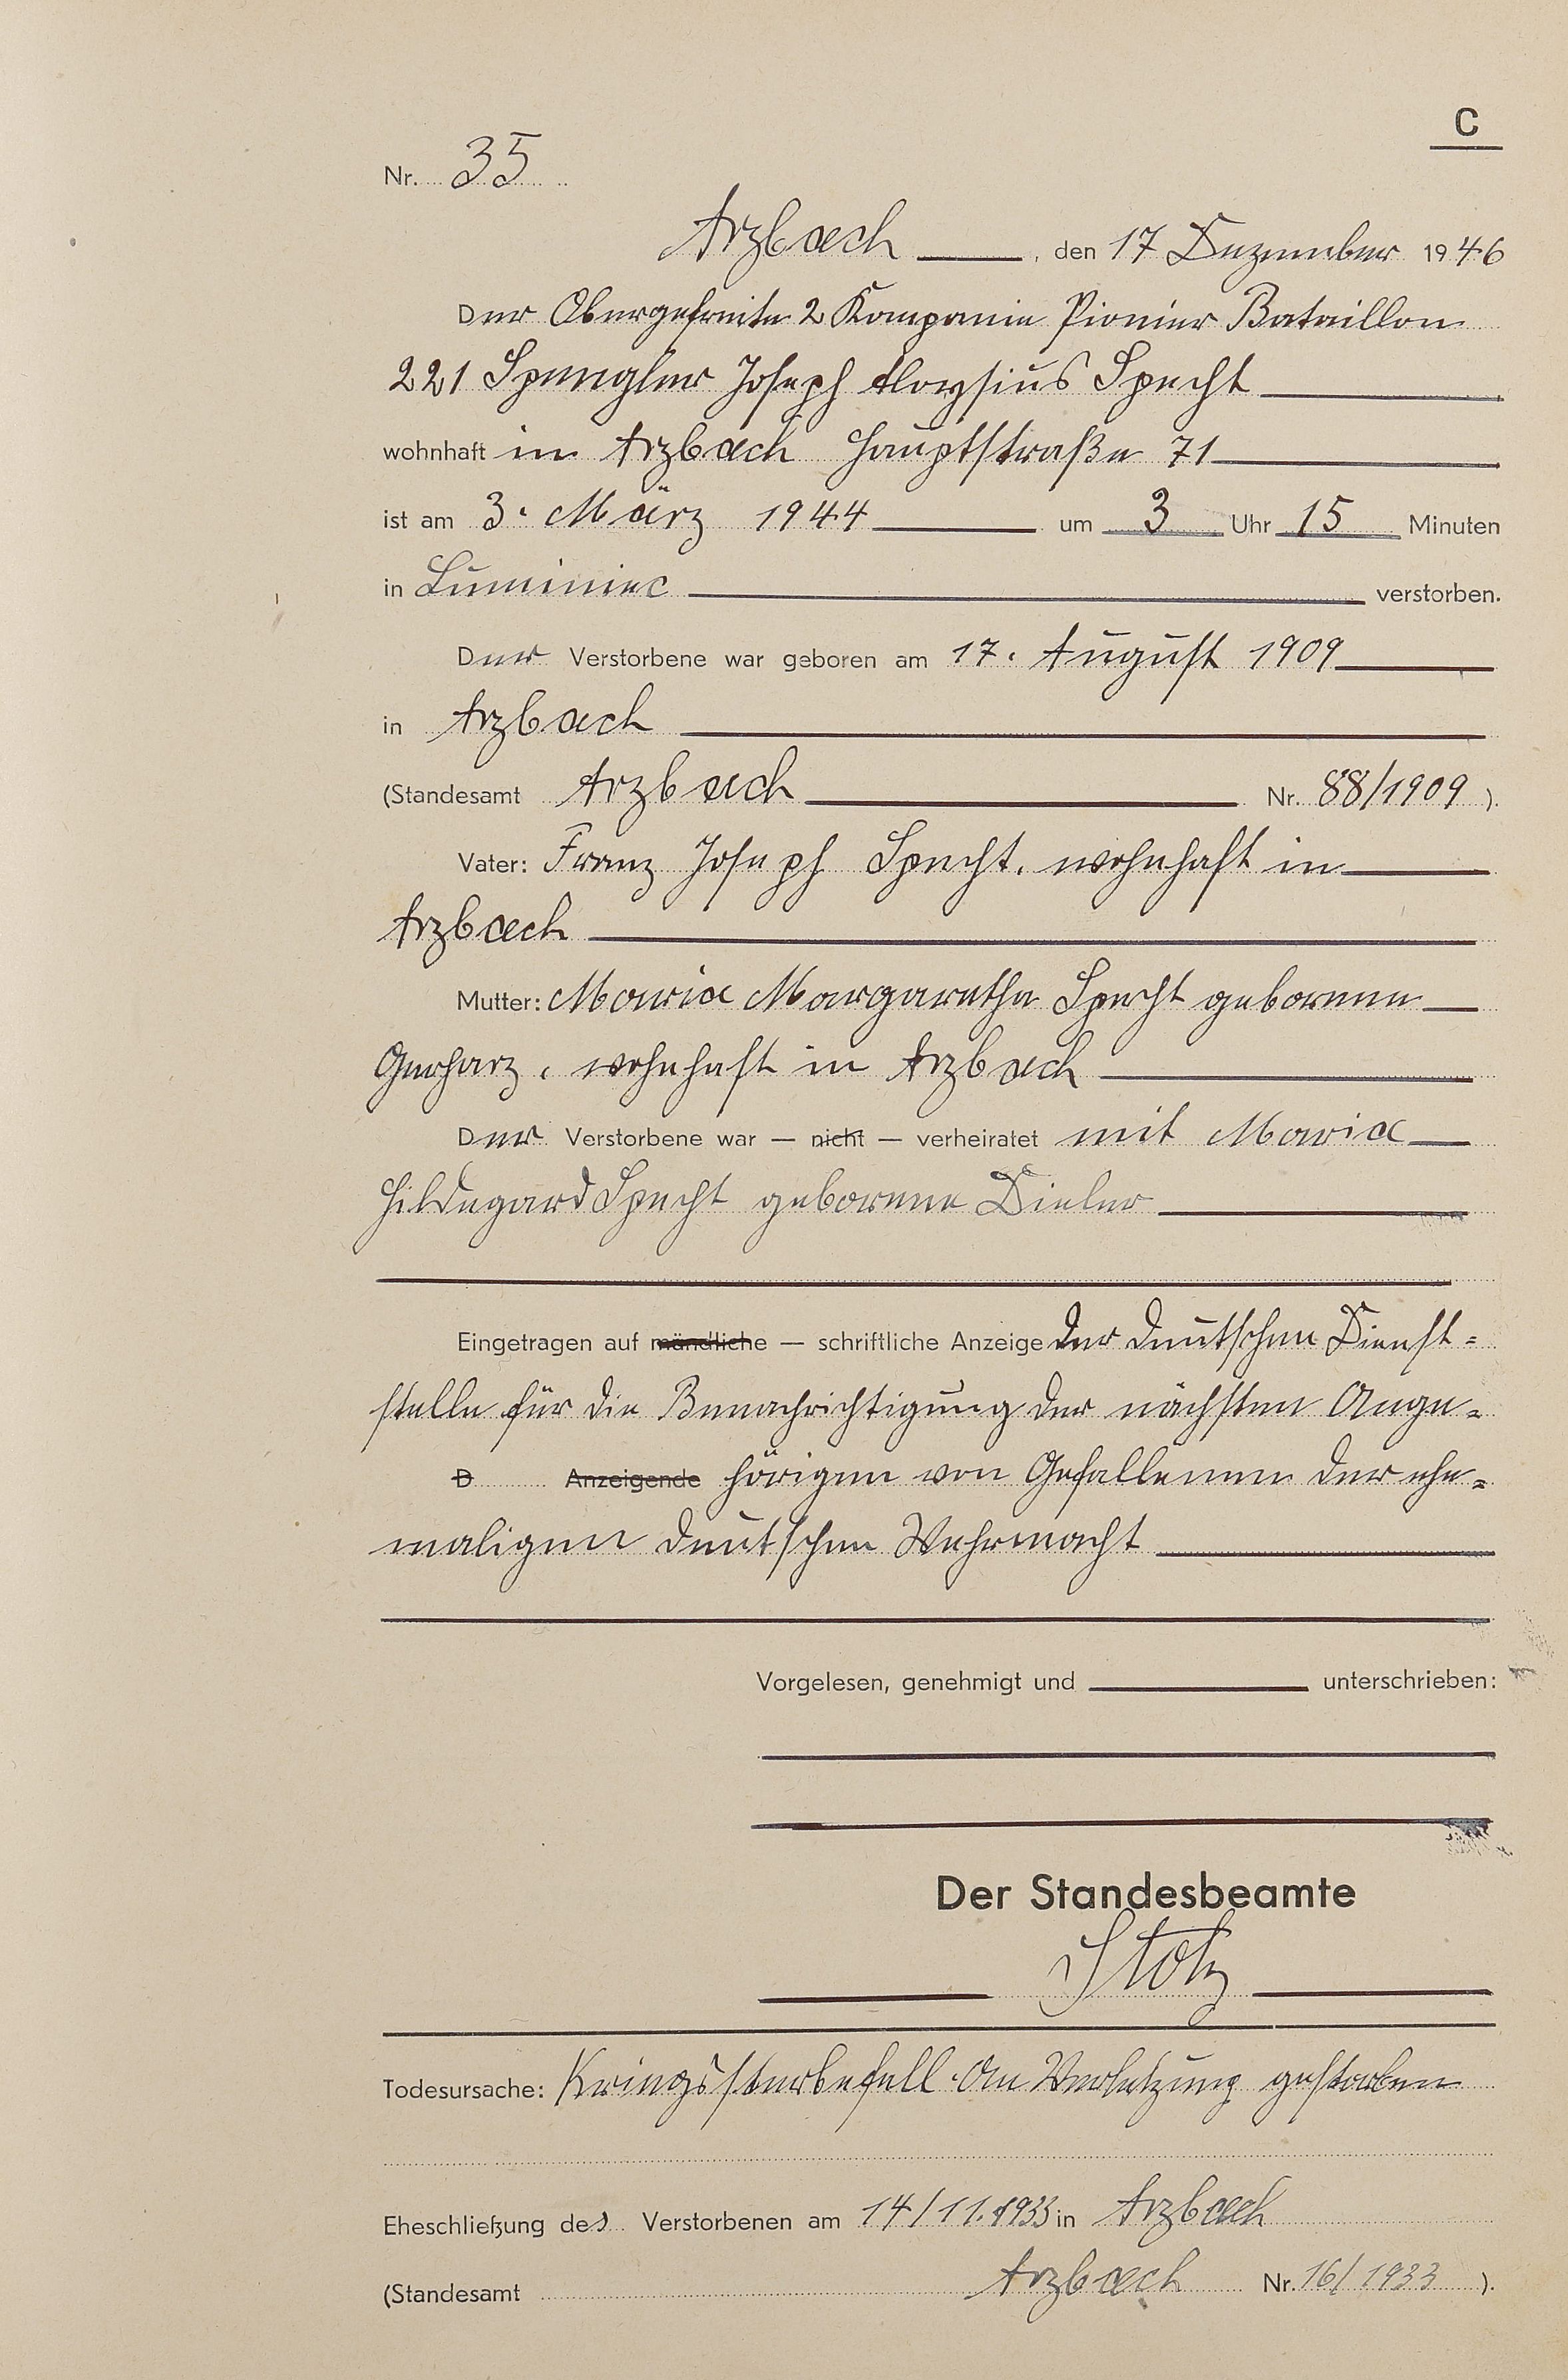 C
Nr. 35
Arzbach, den 17 Dezember 1946
Der Obergefreite 2 Kompanie Pionier Bataillon
221 Spengler Joseph Aloysius Specht
wohnhaft in Arzbach Hauptstraße 71
ist am 3. März 1944 um 3 Uhr 15 Minuten
in Luminiec verstorben.
Der Verstorbene war geboren am 17. August 1909
in Arzbach
(Standesamt Arzbach Nr. 88/1909 ).
Vater: Franz Joseph Specht, wohnhaft in
Arzbach
Mutter: Maria Margaretha Specht geborene
Gerharz, wohnhaft in Arzbach
Der Verstorbene war — nicht — verheiratet mit Maria
Hildegard Specht geborene Dieler
Eingetragen auf mündliche — schriftliche Anzeige der Deutschen Dienst=
stelle für die Benachrichtigung der nächsten Ange=
D Anzeigende hörigen von Gefallenen der ehe=
maligen deutschen Wehrmacht
Vorgelesen, genehmigt und unterschrieben:
Der Standesbeamte
Stotz
Todesursache: Kriegssterbefall. An Verletzung gestorben
Eheschließung des Verstorbenen am 14/11.1933 in Arzbach
(Standesamt Arzbach Nr. 16/1933 ).